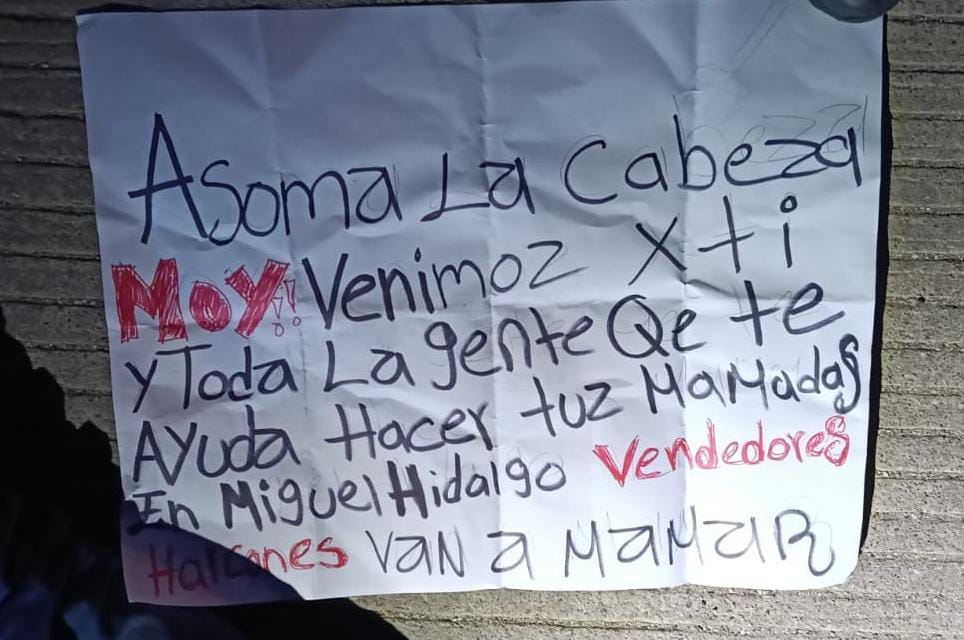 Asoma La Cabeza
MOY!! Venimoz x ti
y Toda La gente Qe te
Ayuda Hacer tuz MaMadas
In Miguel Hidalgo Vendedores
Halcones Van a MaMaR